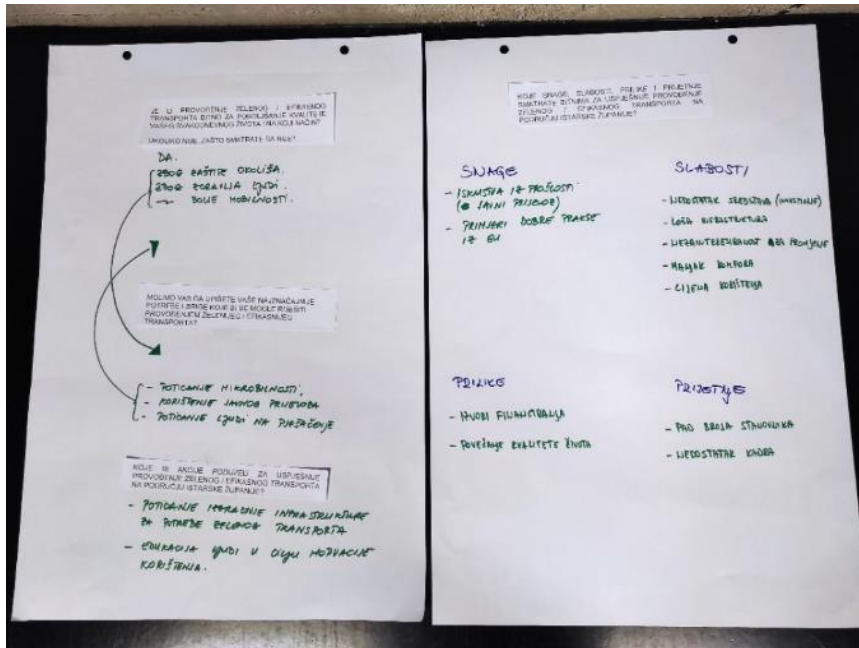 JE LI PROVOĐENJE ZELENOG I EFIKASNOG
TRANSPORTA BITNO ZA POBOLJŠANJE KVALITETE
VAŠEG SVAKODNEVNOG ŽIVOTA I NA KOJI NAČIN?
UKOLIKO NIJE, ZAŠTO SMATRATE DA NIJE?
DA.
ZBOG ZAŠTITE OKOLIŠA.
ZBOG ZDRAVLJA LJUDI.
BOLJE MOBILNOSTI.
MOLIMO VAS DA UPIŠETE VAŠE NAJZNAČAJNIJE
POTREBE I BRIGE KOJE BI SE MOGLE RIJEŠITI
PROVOĐENJEM ZELENIJEG I EFIKASNIJEG
TRANSPORTA?
- POTICANJE MIKROBILNOSTI,
- KORIŠTENJE JAVNOG PRIJEVOZA
- POTICANJE LJUDI NA PJEŠAČENJE
KOJE BI AKCIJE PODUZELI ZA USPJEŠNIJE
PROVOĐENJE ZELENOG I EFIKASNOG TRANSPORTA
NA PODRUČJU ISTARSKE ŽUPANIJE?
- POTICANJE IZGRADNJE INFRASTRUKTURE
ZA POTREBE ZELENOG TRANSPORTA
- EDUKACIJA LJUDI U CILJU MOTIVACIJE
KORIŠTENJA.
KOJE SNAGE, SLABOSTI, PRILIKE I PRIJETNJE
SMATRATE BITNIMA ZA USPJEŠNIJE PROVOĐENJE
ZELENOG I EFIKASNOG TRANSPORTA NA
PODRUČJU ISTARSKE ŽUPANIJE?
SNAGE
- ISKUSTVA IZ PROŠLOSTI
(JAVNI PRIJEVOZ)
- PRIMJERI DOBRE PRAKSE
IZ EU
SLABOSTI
- NEDOSTATAK SREDSTAVA
- LOŠA INFRASTRUKTURA
- NEZAINTERESIRANOST ZA PROMJENE
- MANJAK KOMFORA
- CIJENA KORIŠTENJA
PRILIKE
- IZVORI FINANCIRANJA
- POVEĆANJE KVALITETE ŽIVOTA
PRIJETNJE
- PAD BROJA STANOVNIKA
- NEDOSTATAK KADRA